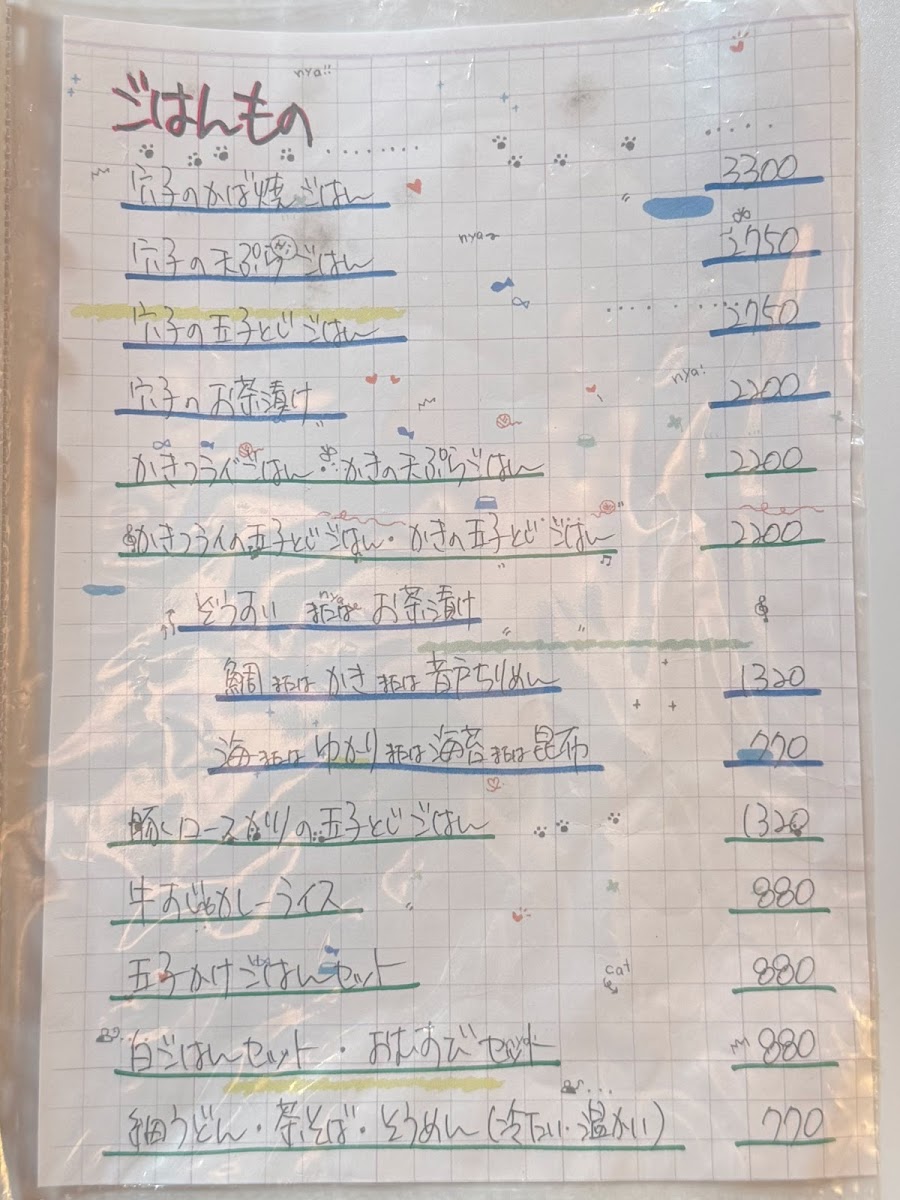 nya!!
ごはんもの
穴子のかば焼ごはん 3300
nya~
穴子の天ぷらごはん 2750
穴子の玉子とじごはん 2750
nya!
穴子のお茶漬け 2200
かきフライごはん・かきの天ぷらごはん 2200
かきフライの玉子とじごはん・かきの玉子とじごはん 2200
ぞうすい または お茶漬け
鯛 または かき または 音戸ちりめん 1320
海 または ゆかり または 海苔 または 昆布 770
豚ロースカツの玉子とじごはん 1320
牛すじカレーライス 880
玉子かけごはんセット 880
cat
白ごはんセット・おむすびセット 880
細うどん・茶そば・そうめん(冷たい・温かい) 770